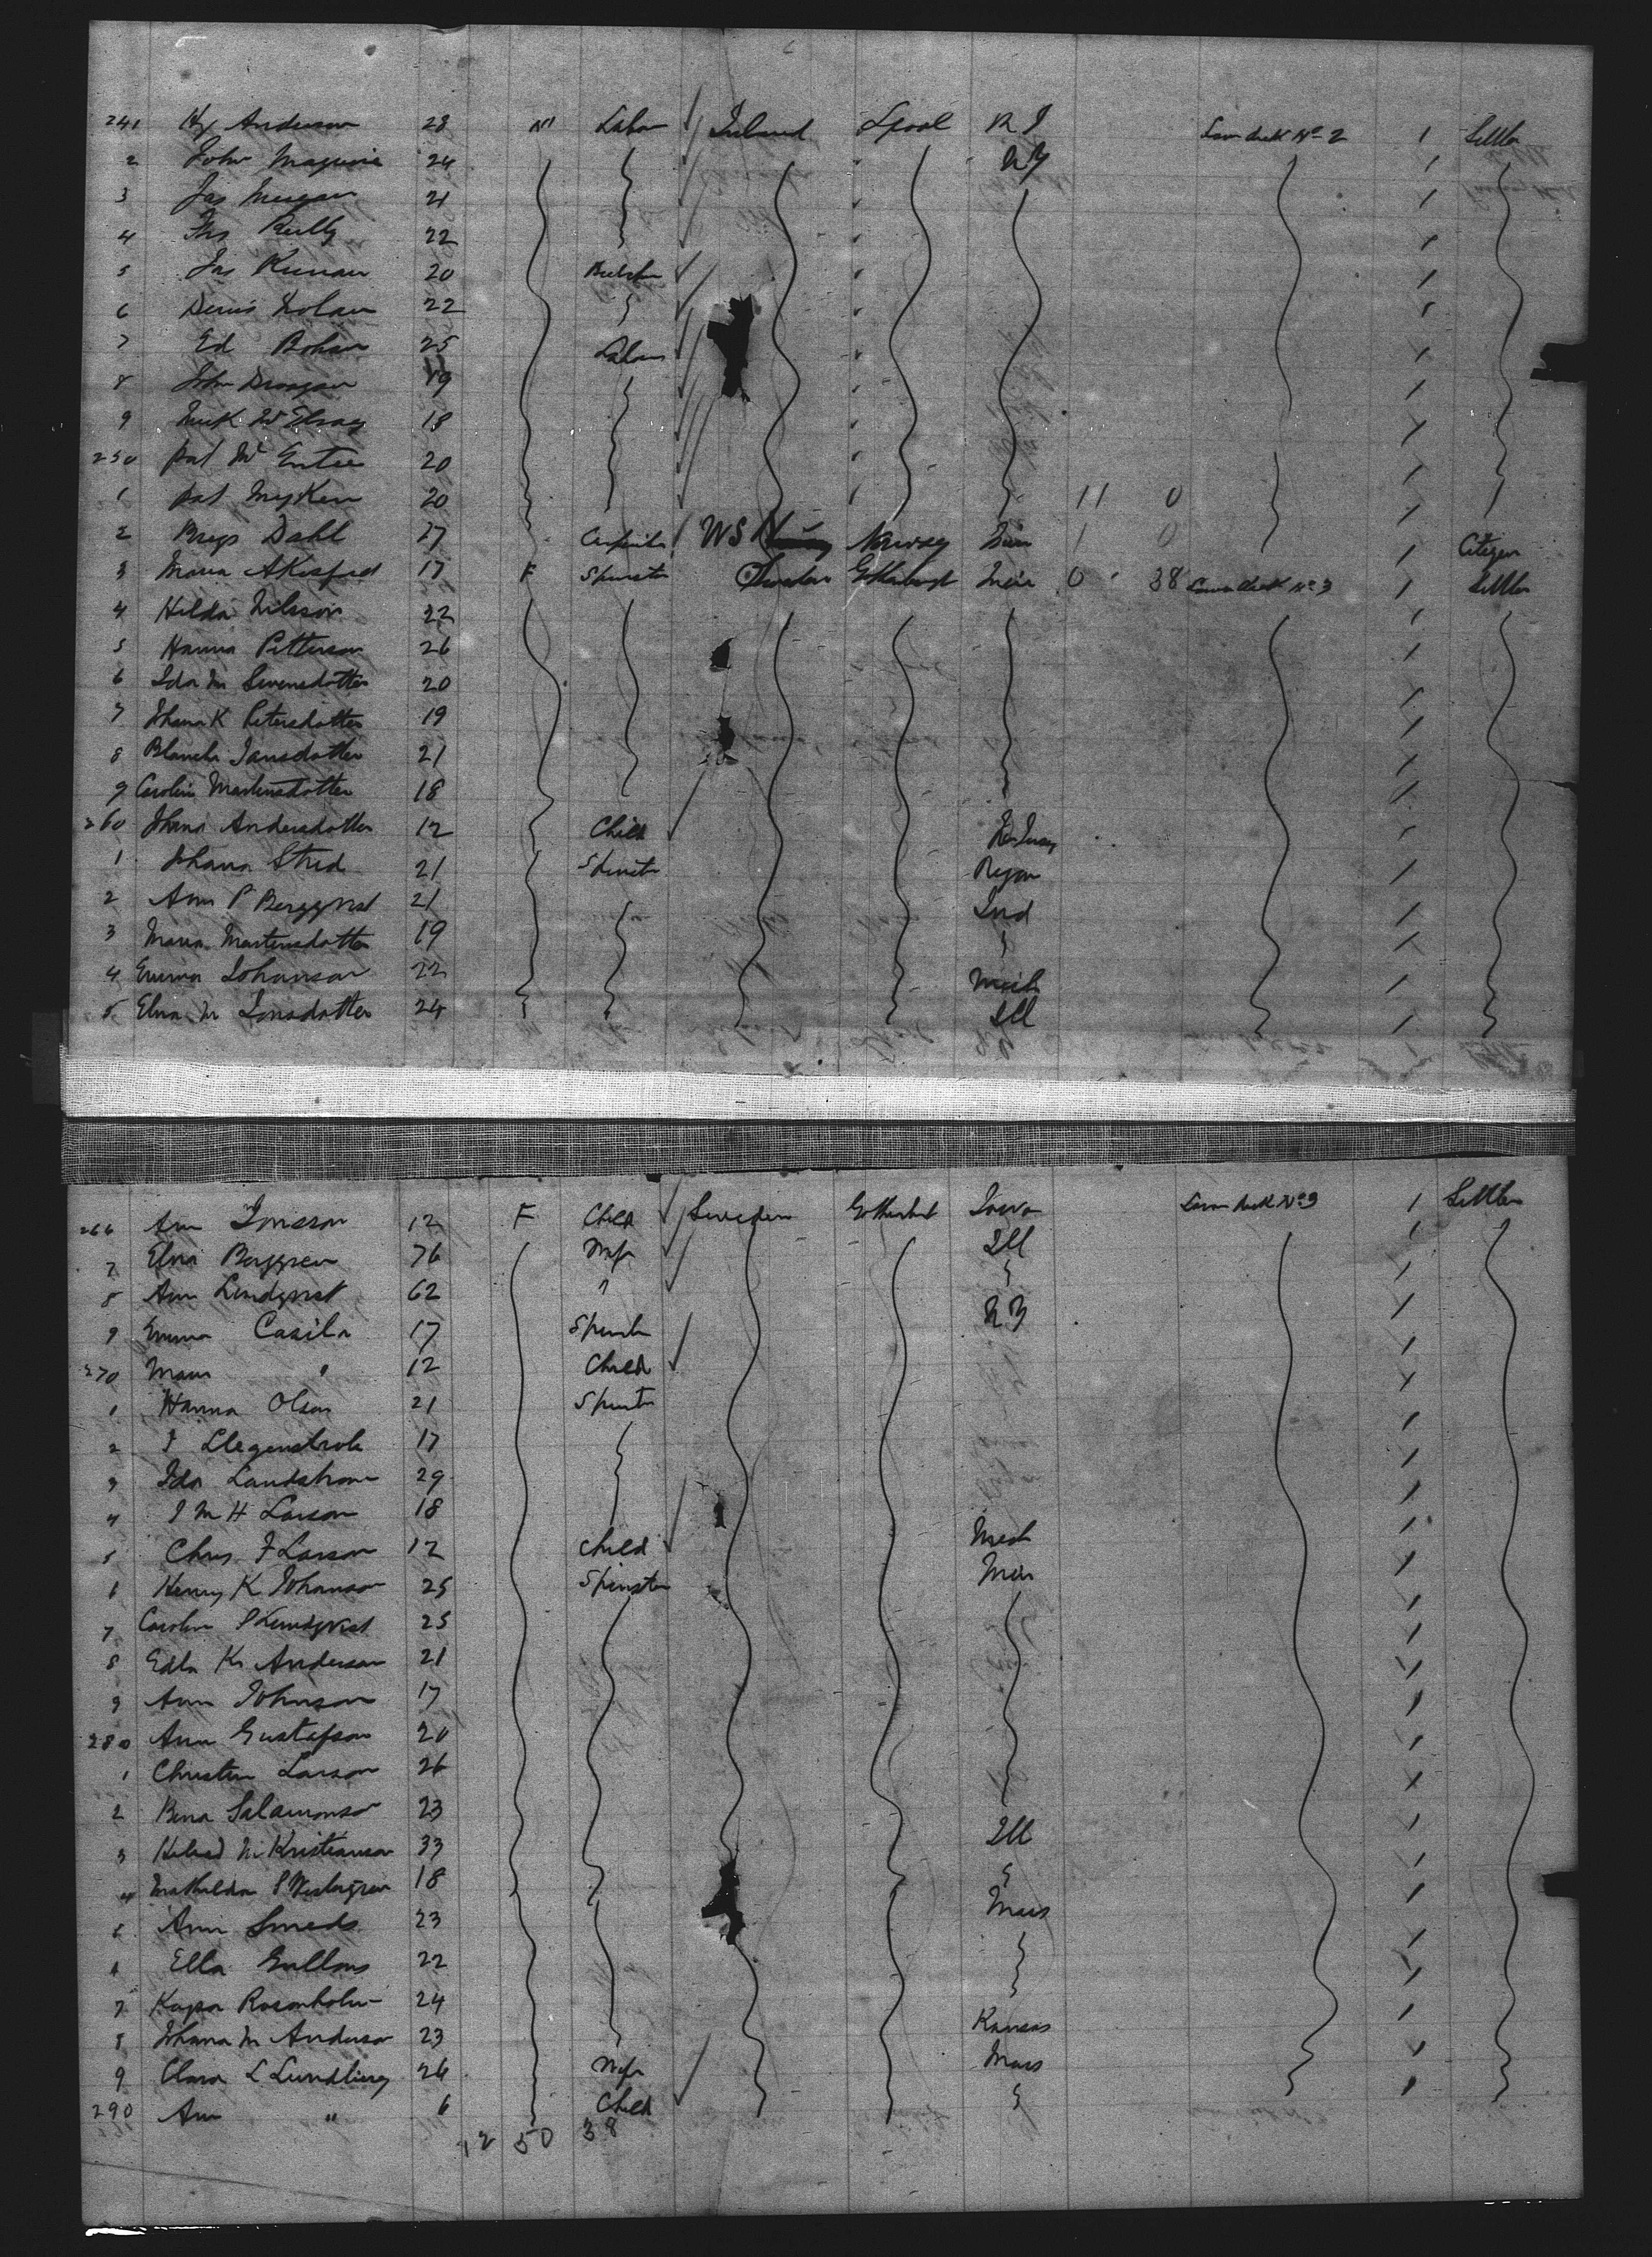 241 Hy Anderson 28 M Labor Ireland Lpool R I Lower deck No 2 1 Settler
2 John Maguire 24 N Y
3 Jas Morgan 21
4 Ths Reilly 22
5 Jas Kiernan 20 Butcher
6 Denis Nolan 22
7 Ed Bohan 25 Labor
8 John Droogan 19
9 Mick McElroy 18
250 Pat McEntee 20
1 Pat 20 11 0
2 Dahl 27 Carpenter US Norway Min 1 0 Citizen
3 Maria 17 F Spinster Sweden Gothenburg 0 38 Lower deck No 3 Settler
4 Hilda Nilsson 22
5 Hanna Petterson 26
6 Ida M Svensdotter 20
7 Johana K Petersdotter 19
8 Blanche Jansdotter 21
9 Caroline Martinsdotter 18
260 Johana Andersdotter 12 Child
1 Johana Strid 21 Spinster
2 Ann P Bergqvist 21 Ind
3 Maria Martensdotter 19
4 Emma Johanson 22 Mich
5 Elna M Jonsdotter 24 Ill
266 Ann Jonsson 12 F Child Sweden Gothenburg Iowa Lower deck No 3 1 Settler
7 Elna Berggren 76 Wife Ill
8 Ann Lindqvist 62 "
9 Emma Casila 17 Spinster N Y
270 Maria " 12 Child
1 Hanna Olson 21 Spinster
2 17
3 Ida Landstrom 29
4 I M H Larson 18
5 Chris F Larson 12 Child Mich
6 Henny K Johanson 25 Spinster Min
7 Caroline 25
8 Edla K Anderson 21
9 Ann Johnson 17
280 Ann Gustafson 20
1 Christin Larson 26
2 Bena Salamonson 23
3 M Kristianson 33 Ill
4 Mathilda S Westergren 18
5 Ann Smeds 23 Mass
6 Ella 22
7 Kajsa Rosenholm 24
8 Johana M Anderson 23 Kansas
9 Clara L Lundberg 26 Wife Mass
290 Ann " 6 Child
12 50 38